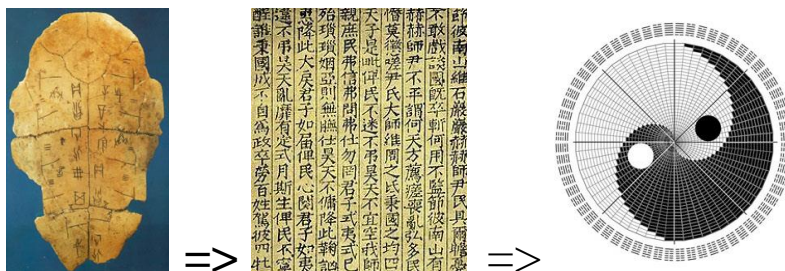 => =>
節彼南山維石巖巖赫赫師尹民具爾瞻憂
不敢戲談國既卒斬何用不監節彼南山有
赫赫師尹不平謂何天方薦瘥喪亂弘多民
憯莫懲嗟尹氏大師維周之氐秉國之均四
天子是毗俾民不迷不弔昊天不宜空我師
親庶民弗信弗問弗仕勿罔君子式夷式已
殆瑣瑣姻亞則無膴仕昊天不傭降此鞠訩
降此大戾君子如届俾民心闋君子如夷
違不弔昊天亂靡有定式月斯生俾民不寧
酲誰秉國成不自為政卒勞百姓駕彼四牡